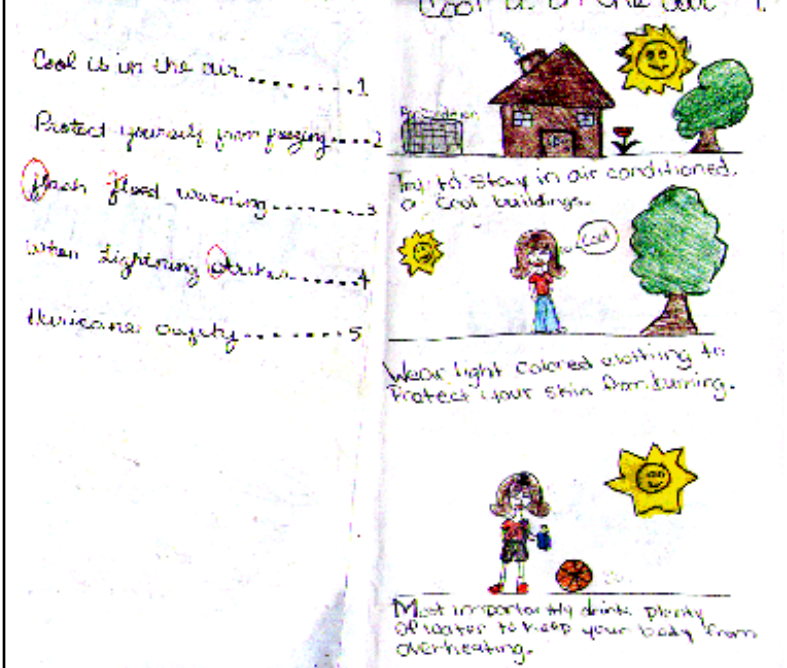 Cool is in the air.........1
Protect yourself from freezing....2
flash flood warning........3
when Lightning strikes.....4
Hurricane safety........5
Cool is in the air 1.
Try to stay in air conditioned,
or cool buildings.
Cool
Wear light colored clothing to
Protect your skin from burning.
Most importantly drink plenty
of water to keep your body from
overheating.